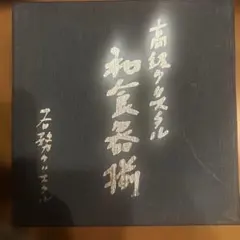 高級クリスタル
和食器揃
石塚クリスタル